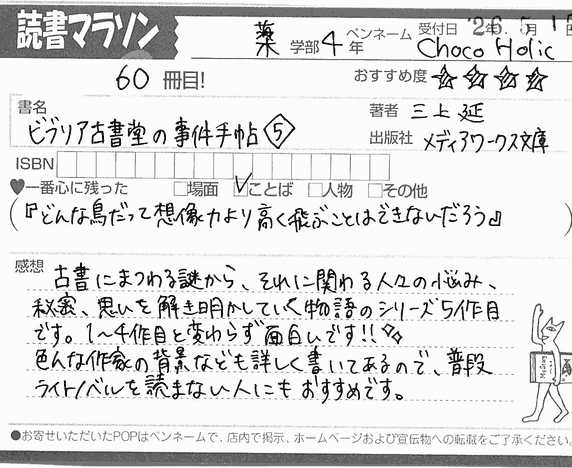 読書マラソン
薬学部4年 ペンネーム Choco Holic 受付日 '26.5.1
60冊目!
おすすめ度 ☆☆☆☆
書名 ビブリア古書堂の事件手帖⑤
著者 三上延
出版社 メディアワークス文庫
ISBN
♥一番心に残った □場面 ☑ことば □人物 □その他
(『どんな鳥だって想像力より高く飛ぶことはできないだろう』)
感想
古書にまつわる謎から、それに関わる人々の悩み、
秘密、思いを解き明かしていく物語のシリーズ5作目
です。1～4作目と変わらず面白いです!!
色んな作家の背景なども詳しく書いてあるので、普段
ライトノベルを読まない人にもおすすめです。
●お寄せいただいたPOPはペンネームで、店内で掲示、ホームページおよび宣伝物への転載をご了承ください。